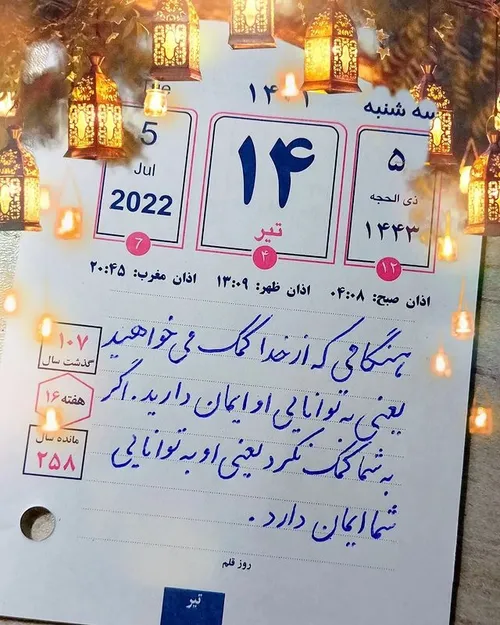 سه شنبه
۱۴۰۱
Tue
۵
ذی الحجه
۱۴۴۳
۱۲
۱۴
تیر
۴
5
Jul
2022
7
اذان صبح: ۰۴:۰۸ اذان ظهر: ۱۳:۰۹ اذان مغرب: ۲۰:۴۵
هنگامی که از خدا کمک می خواهید
یعنی به توانایی او ایمان دارید. اگر
به شما کمک نکرد یعنی او به توانایی
شما ایمان دارد.
۱۰۷
گذشت سال
هفته ۱۶
مانده سال
۲۵۸
روز قلم
تیر